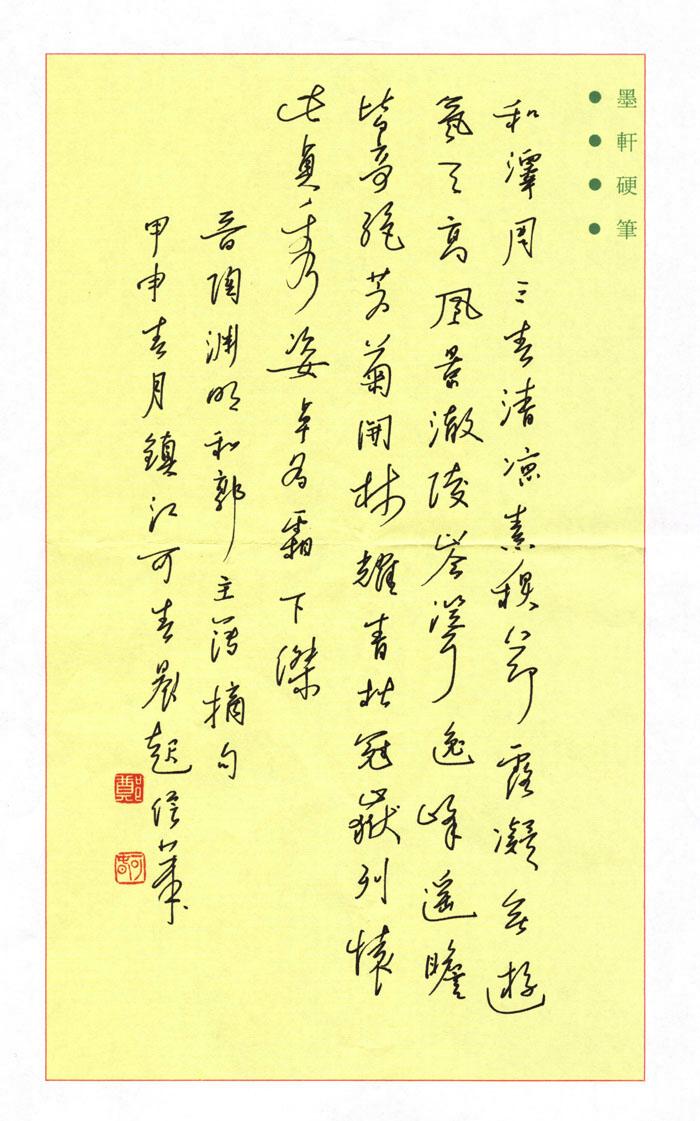 墨軒硬筆
和澤周三春清凉素秋節露凝无遊
氛天高風景澈陵岑聳逸峰遥瞻
皆奇絕芳菊開林耀青松冠巖列懷
此貞秀姿卓為霜下傑
晉陶淵明和郭主簿摘句
甲申春月鎮江可春晨起信筆